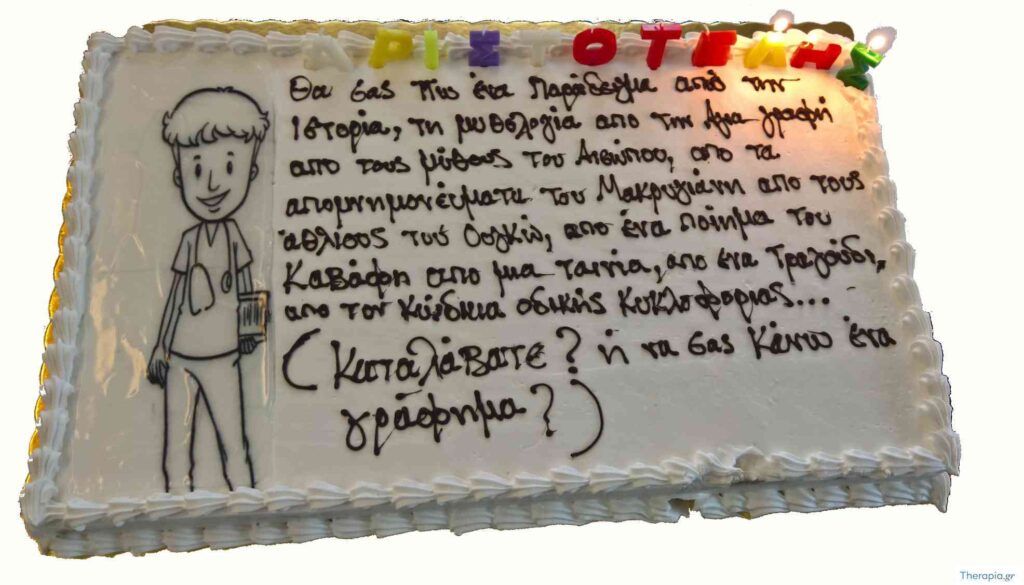 ΑΡΙΣΤΟΤΕΛΗΣ
Θα σας πω ένα Παράδειγμα από την
Ιστορία, τη μυθολογία απο την Αγια γραφή
απο τους μύθους του Αισώπου, απο τα
απομνημονεύματα του Μακρυγιάνη απο τους
άθλιους τού Ουγκώ, απο ένα ποίημα του
Καβάφη απο μια ταινία, απο ένα Τραγούδι,
απο τον Κώδικα οδικής Κυκλοφορίας...
(Καταλάβατε? ή να σας Κάνω ένα
γράφημα?)
Therapia.gr